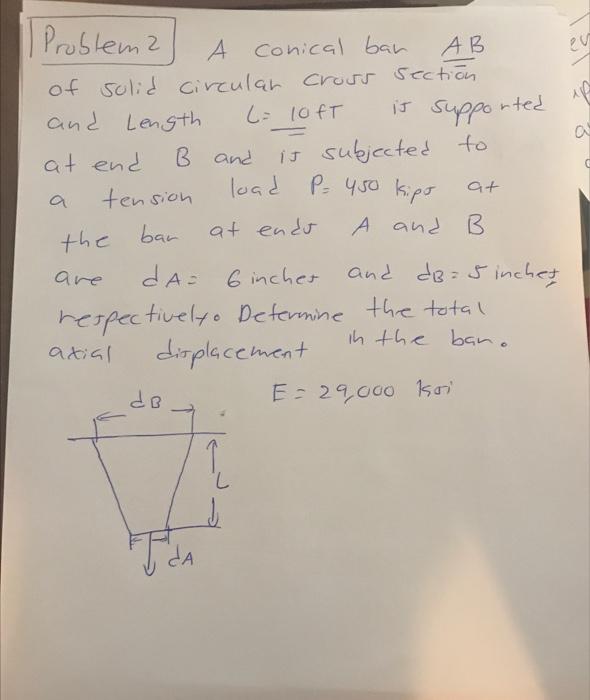 Problem 2 A conical bar AB
of solid circular cross section
and Length L= 10 fT is supported
at end B and is subjected to
a tension load P= 450 kips at
the bar at ends A and B
are dA= 6 inches and dB= 5 inches
respectively. Determine the total
axial displacement in the bar.
E = 29,000 ksi
dB
L
dA